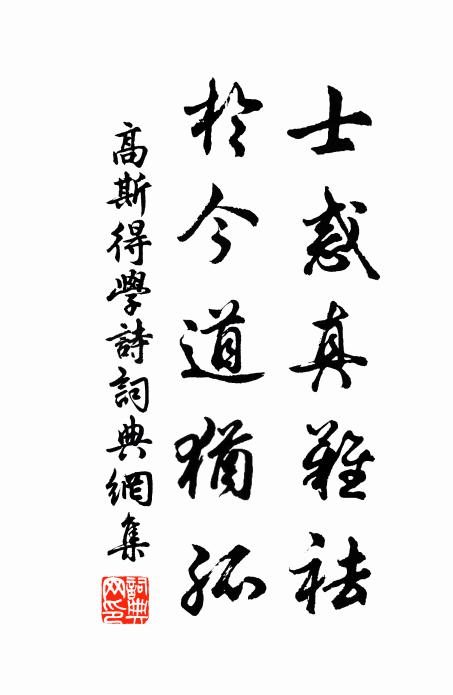 士惑真難祛
於今道猶孤
高斯得學詩詞典網集
詞典網印